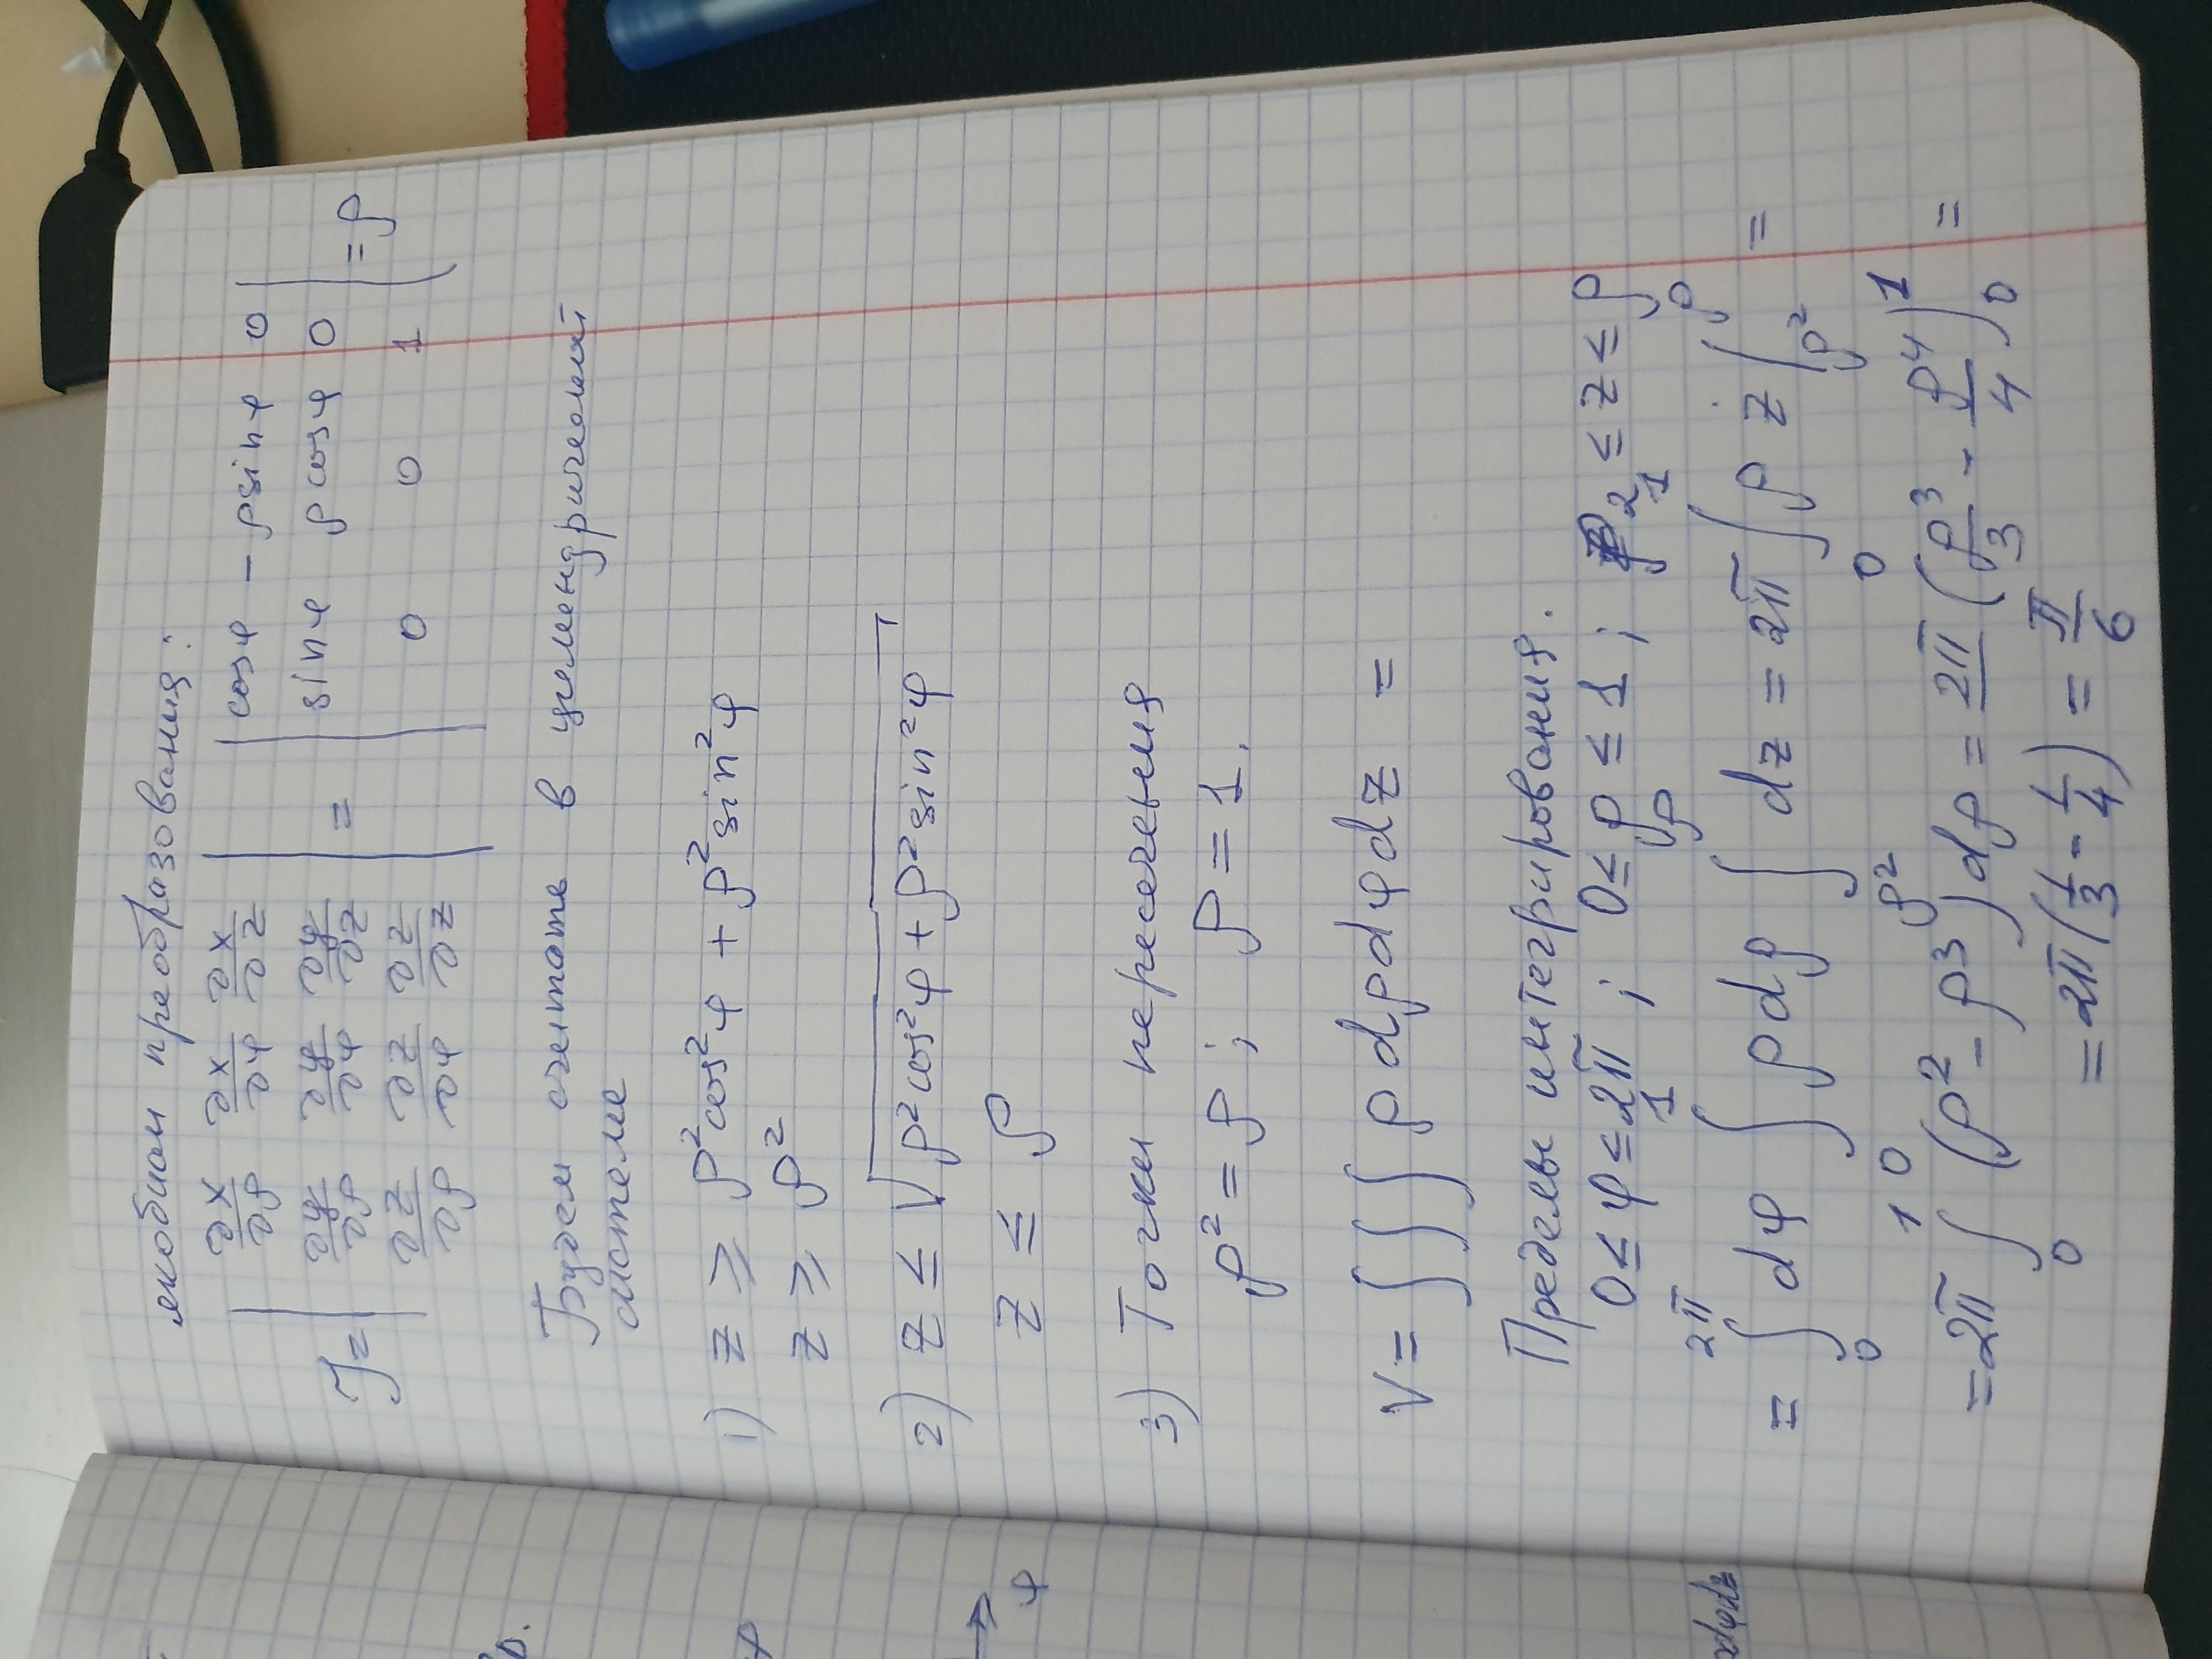 якобиан преобразования:
J = | ∂x/∂ρ ∂x/∂φ ∂x/∂z | = | cosφ -ρsinφ 0 | = ρ
| ∂y/∂ρ ∂y/∂φ ∂y/∂z | | sinφ ρcosφ 0 |
| ∂z/∂ρ ∂z/∂φ ∂z/∂z | | 0 0 1 |
Будем считать в цилиндрической
системе
1) z ≥ ρ²cos²φ + ρ²sin²φ
z ≥ ρ²
2) z ≤ √(ρ²cos²φ + ρ²sin²φ)
z ≤ ρ
3) Точки пересечения
ρ² = ρ; ρ = 1.
V = ∫∫∫ ρdρdφdz =
Пределы интегрирования.
0 ≤ φ ≤ 2π; 0 ≤ ρ ≤ 1; ρ² ≤ z ≤ ρ
= ∫₀^2π dφ ∫₀^1 ρdρ ∫_ρ²^ρ dz = 2π ∫₀^1 ρ z |_ρ²^ρ =
= 2π ∫₀^1 (ρ² - ρ³)dρ = 2π (ρ³/3 - ρ⁴/4)|₀^1 =
= 2π(1/3 - 1/4) = π/6
φ